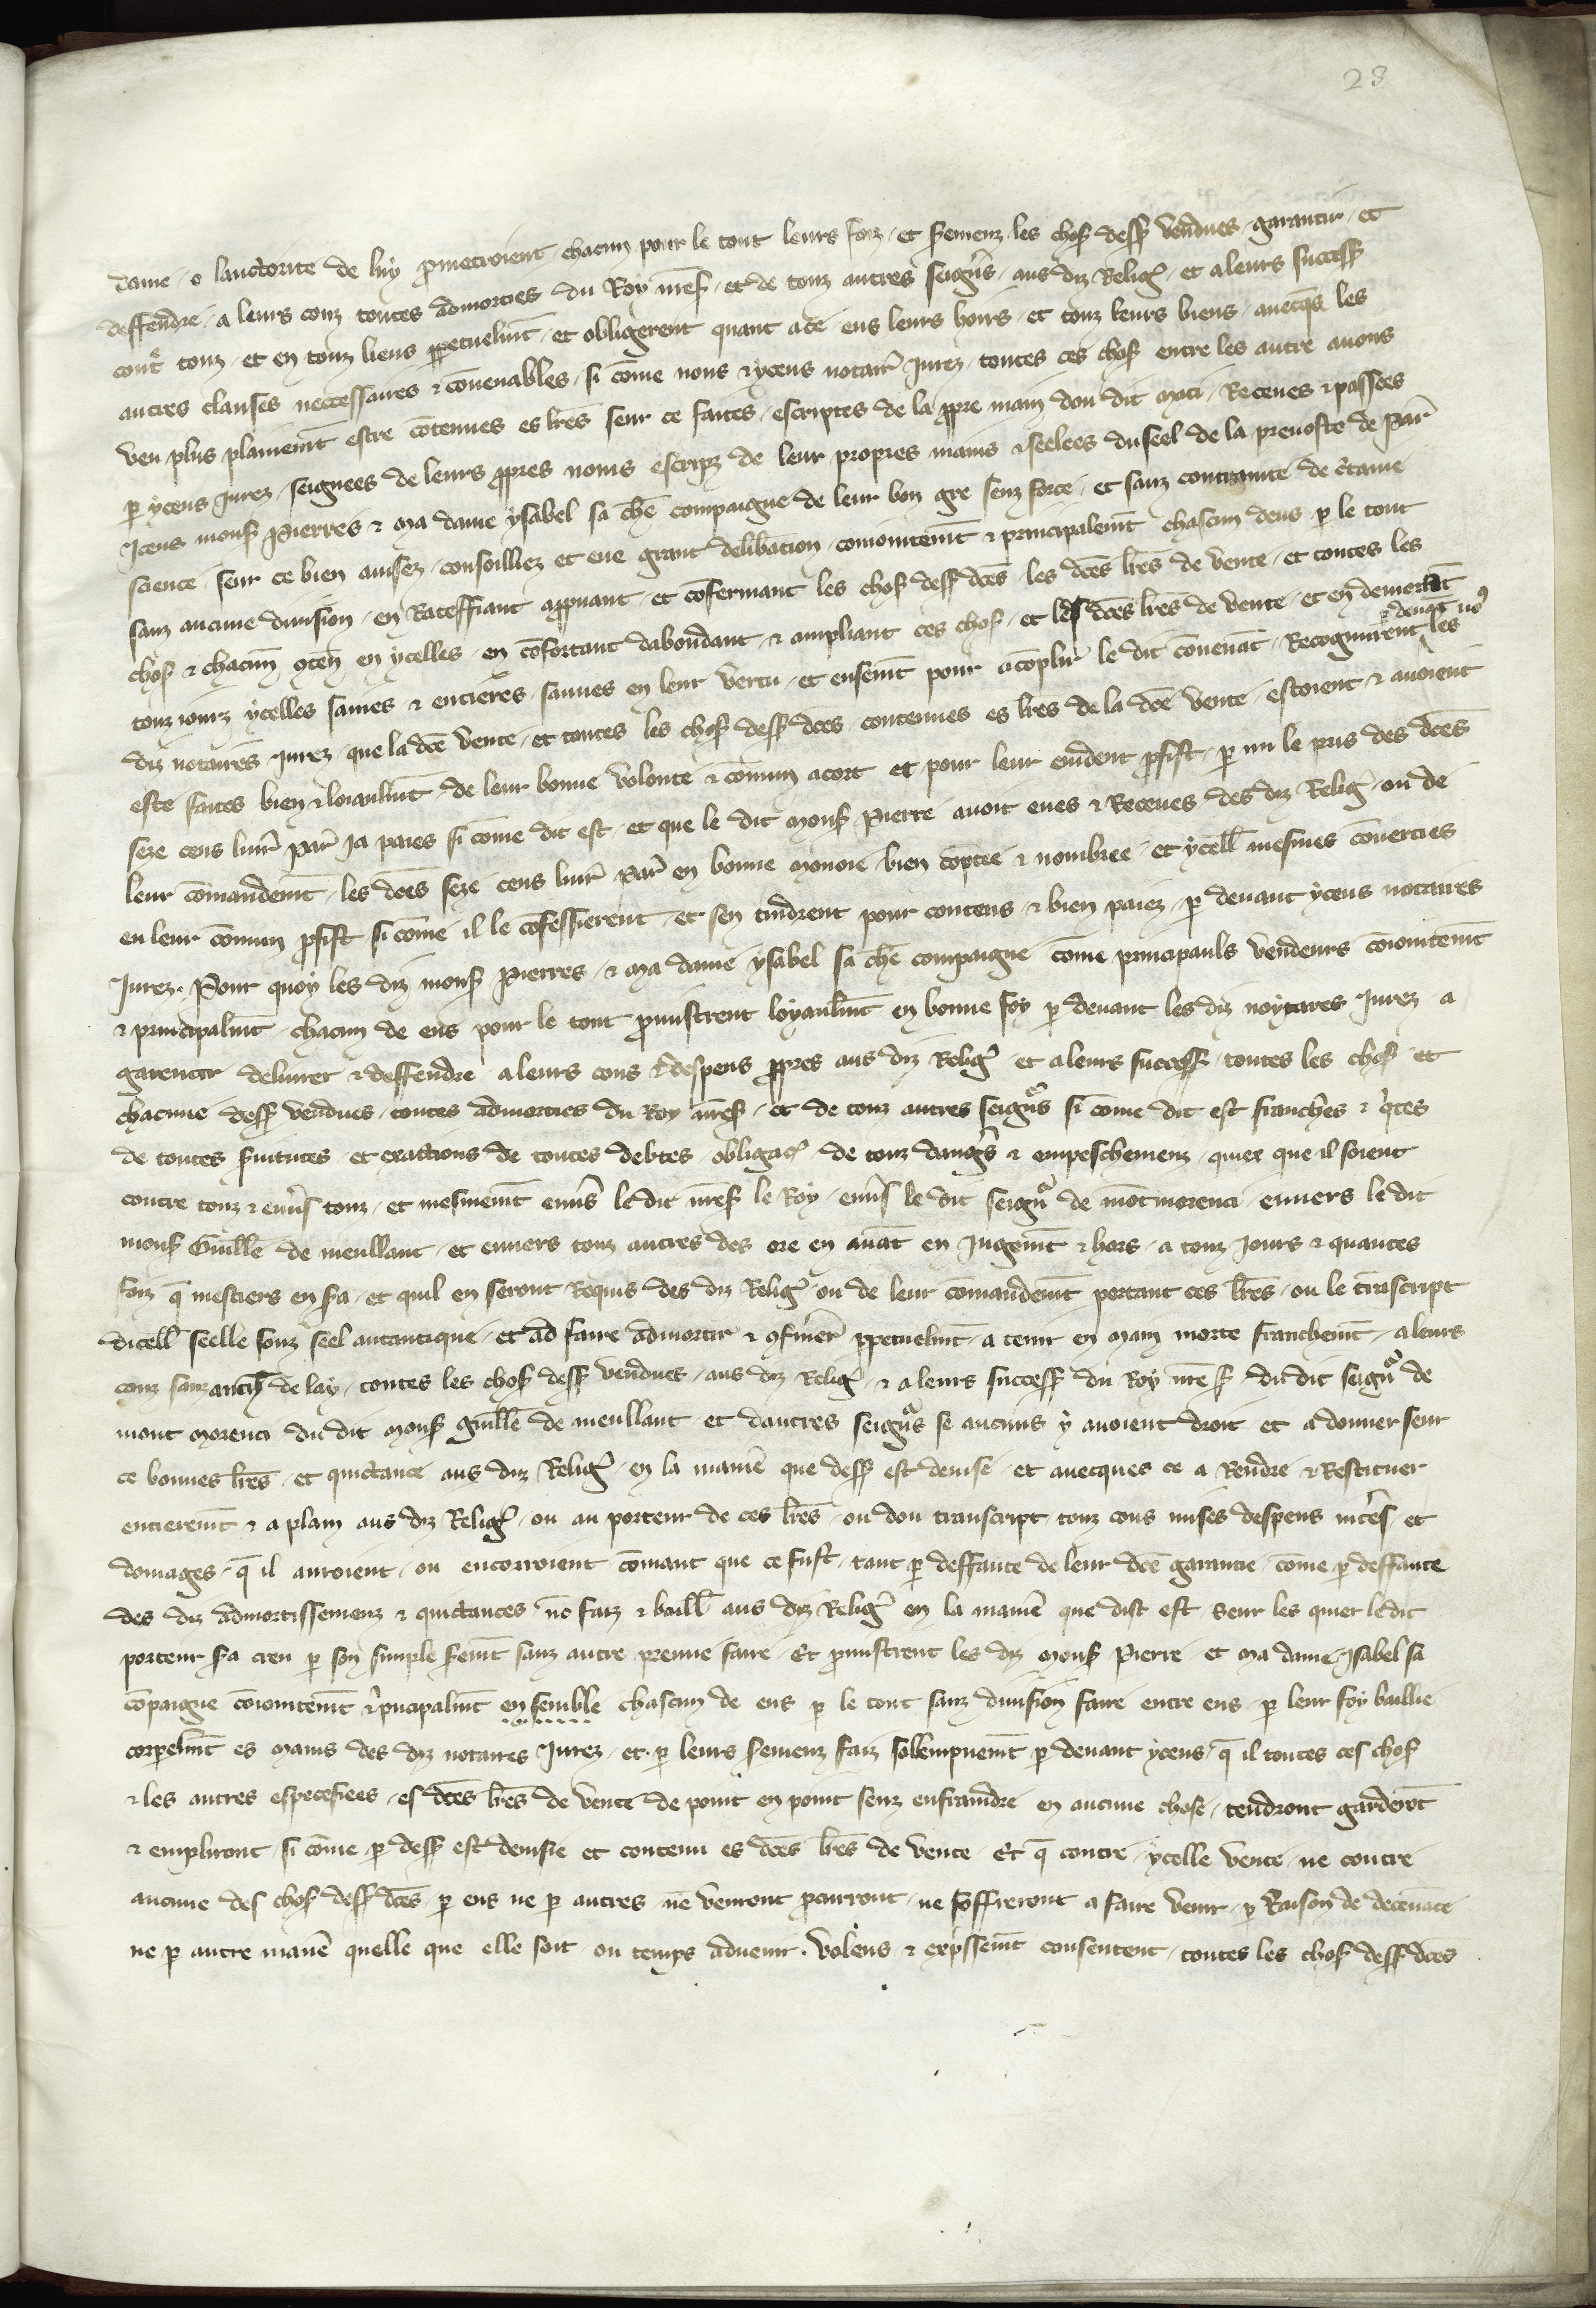 28
dame · o lauctorite de luy pͫmectroient · chacun pour le tout leurs foiz · et ẜemenz · les choẜ desẜ vendues · garantir · et
deffendre · a leurs couz toutes admorties du Roy nr̄eẜ · et de touz autres seigneͬs · aus diz Religˀ · et a leurs succesẜ
contͤ touz · et en touz liens ꝑpetuelmt̄ · et obligerent quant a ce eus leurs hoirs · et touz leurs biens · auecqs̄ les
autres clauses neccessaires ⁊ cōuenables · si cōme nous ⁊ yceus notairˀ Jurez · toutes ces choẜ entre les autre auons
veu plus plainemt̄ estre cōtenues es lr̄es seur ce faites · escriptes de la ꝓpre main dou dit maci · Receues ⁊ passees
ꝑ yceus Jurez · seignees de leurs ꝓpres noms escripz de leur propres mains ⁊ seelees du seel de la preuoste de Parˀ
Iceus monẜ Pierres ⁊ ma dame ysabel sa ch̄e compaigne de leur bon gre senz force · et sanz contrainte de c̄taine
science · seur ce bien auisez · conseilliez et eue grant delibation · conioitemt̄ ⁊ principalemt̄ chascun deus ꝑ le tout
sanz aucune diuision · en Rateffiant appuant · et cōfermant les choẜ desẜ dc̄es · les dc̄es lr̄es de vente · et toutes les
choẜ ⁊ chacun 9ten̄ en ycelles · en cōfortant dabondant ⁊ ampliant ces choẜ · et les dc̄es lr̄es de vente · et en demorāt
touz iourz ycelles saines ⁊ entieres · sauues en leur vertu · et ensemt̄ pour acōplir le dit cōuenāt · Recognurent ꝑ deuāt no9 les
diz notaires Jurez · que la dc̄e vente · et toutes les choẜ desẜ dc̄es contenues es lr̄es de la dc̄e vente · estoient ⁊ auoient
este faites bien ⁊ loiaulmt̄ · de leur bonne volonte ⁊ cōmun acort et pour leur euident ꝓfist · ꝑ mi le pris des dc̄es
seze cens liurˀ Parˀ Ja paies si cōme dit est · et que le dit monẜ Pierre auoit eues ⁊ Receues des diz Religˀ · ou de
leur cōmandemt̄ · les dc̄es seze cens liurˀ Parˀ en bonne monoie bien cōptee ⁊ nombree · et ycellˀ mesmes cōuerties
en leur cōmun ꝓfist si cōme il le cōfessierent · et sen tindrent pour contens ⁊ bien paiez · ꝑ deuant yceus notaires
Jurez · Pour quoy les diz monẜ Pierres · ⁊ ma dame ysabel sa ch̄e compaigne cōme principauls vendeurs cōioitemt̄
⁊ principalmt̄ · chacun de eus pour le tout ꝓmistrent loyaulmt̄ en bonne foy ꝑ deuant les diz noytares Jurez a
garentir deliurer ⁊ deffendre · a leurs cous ⁊ despens ꝓpres aus diz Religˀ · et a leurs succesẜ · toutes les choẜ et
chacune desẜ vendues · toutes admorties du Roy nr̄eẜ · et de touz autres seigneͬs si cōme dit est franches ⁊ q̄tes
de toutes ẜuitutes · et exactions de toutes debtes · obligac̄ de touz dangˀs ⁊ empeschemenz · quiex que il soient
contre touz ⁊ enuˀs touz · et mesmemt̄ enuˀs le dit nr̄eẜ le Roy · enuˀs le dit seigneͬ de mōtmorenci · enuers le dit
monẜ Guille de meullant · et enuers touz autres des ore en auāt en Jugemt̄ ⁊ hors · a touz Jours ⁊ quantes
foiz q̄ mestiers en ẜa · et quil en seront Requis des diz Religˀ ou de leur cōmandemt̄ portant ces lr̄es · ou le trāscript
dicellˀ seelle souz seel autantique · et ad faire admortir ⁊ 9fmerˀ ꝑpetuelmt̄ · a tenir en main morte franchemt̄ · a leurs
couz sanz de lay · toutes les choẜ desẜ vendues · aus diz Religˀ ⁊ a leurs succesẜ du Roy nr̄eẜ du dit seigneͬ de
mont morenci du dit monẜ guille de meullant · et dautres seigneͬs se aucuns y auoient droit et a donner seur
ce bonnes lr̄es · et quictance aus diz Religˀ · en la manie᷑ que desẜ est deuise · et auecques ce a Rendre ⁊ Restituer
entieremt̄ ⁊ a plain aus diz Religˀ · ou au porteur de ces lr̄es · ou dou transcript · touz cous mises despens intˀes · et
domages · q̄ il auroient · ou encorroient cōmant que ce fust · tant ꝑ deffaute de leur dc̄e garantie · cōme ꝑ deffaute
des diz admortissemenz ⁊ quictances nō faiz ⁊ baillˀ aus diz Religˀ en la manie᷑ que dist est · seur les quiex ledit
porteur ẜa creu ꝑ son simple ẜemt̄ sanz autre preuue faire · Et ꝓmistrent les diz monẜ Pierre et ma dame Isabel sa
cōpaigne cōioitemt̄ ⁊ pͥncipalmt̄ en semble chascun de eus ꝑ le tout sanz diuision faire entre eus · ꝑ leur foy baillie
corpelmt̄ es mains des diz notaires Jurez · et · ꝑ leurs ẜemenz faiz sollempnemt̄ ꝑ deuant yceus · q̄ il toutes ces choẜ
⁊ les autres especefiees · es dc̄es lr̄es de vente de point en point senz enfraindre en aucune chose · tendront garderōt
⁊ empliront · si cōme ꝑ desẜ est deuisie et contenu es dc̄es lr̄es de vente · Et q̄ contre · ycelle vente · ne contre
aucune des choẜ desẜ dc̄es ꝑ eus ne ꝑ autres ne venront ꝓcurront · ne soffreront a faire venir · ꝑ Raison de deceuāce
ne ꝑ autre manie᷑ quelle que elle soit · ou temps aduenir · volens ⁊ expͥssemt̄ consentent · toutes les choẜ desẜ dc̄es